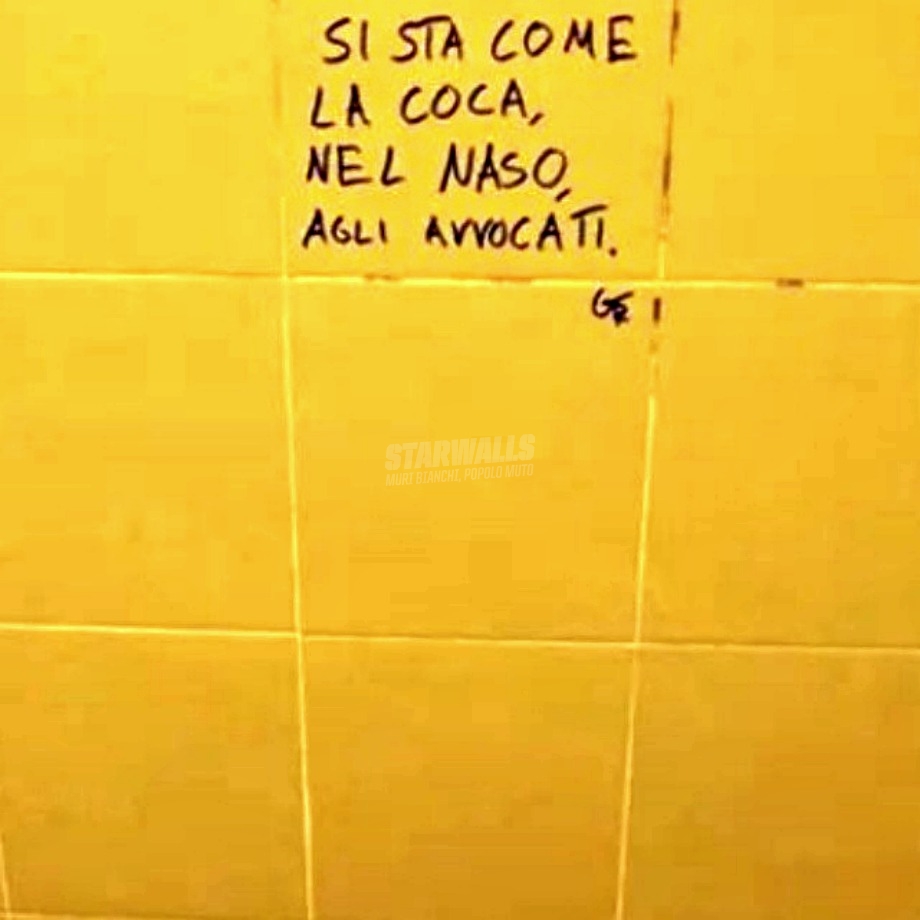 SI STA COME
LA COCA,
NEL NASO,
AGLI AVVOCATI.
STARWALLS
MURI BIANCHI, POPOLO MUTO